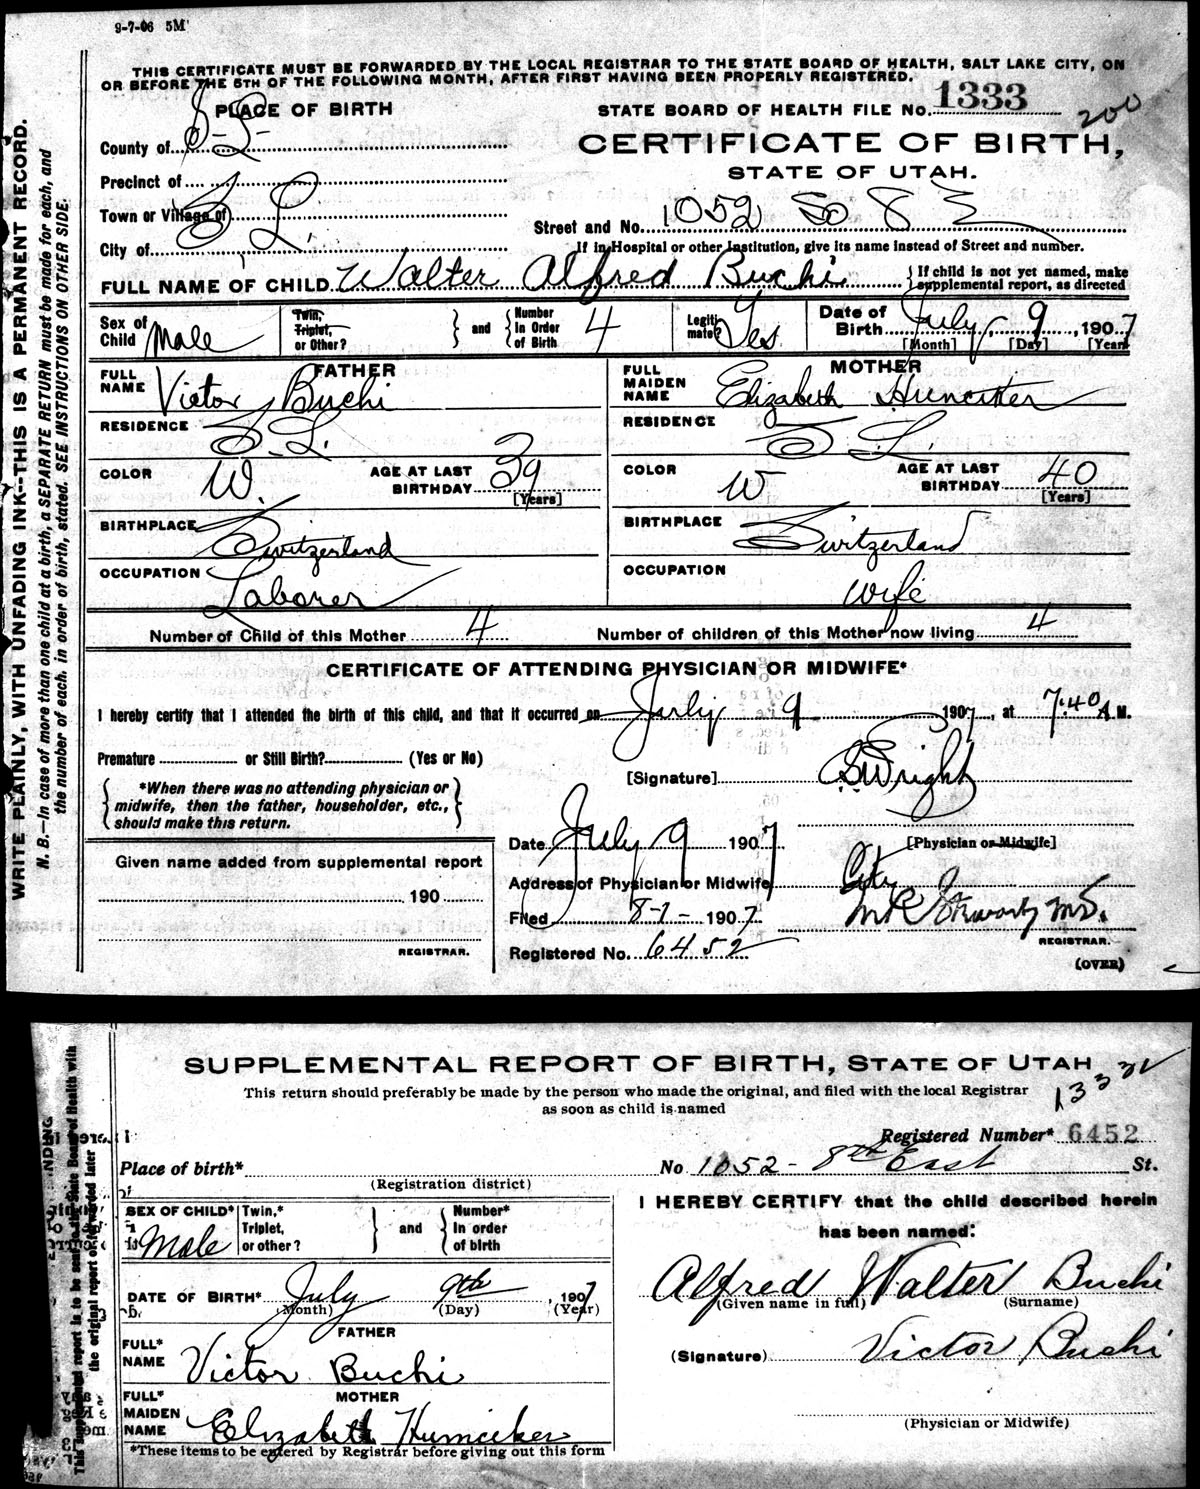 9-7-06 5M
THIS CERTIFICATE MUST BE FORWARDED BY THE LOCAL REGISTRAR TO THE STATE BOARD OF HEALTH, SALT LAKE CITY, ON
OR BEFORE THE 5TH OF THE FOLLOWING MONTH, AFTER FIRST HAVING BEEN PROPERLY REGISTERED.
WRITE PLAINLY, WITH UNFADING INK--THIS IS A PERMANENT RECORD.
N. B.—In case of more than one child at a birth, a SEPARATE RETURN must be made for each, and
the number of each, in order of birth, stated. SEE INSTRUCTIONS ON OTHER SIDE.
PLACE OF BIRTH
STATE BOARD OF HEALTH FILE No. 1333
200
County of S-L-
CERTIFICATE OF BIRTH,
STATE OF UTAH.
Precinct of
Town or Village of
City of S L.
Street and No. 1052 So 8 E
If in Hospital or other Institution, give its name instead of Street and number.
FULL NAME OF CHILD Walter Alfred Buchi
If child is not yet named, make
supplemental report, as directed
Sex of Child Male
Twin, Triplet, or Other?
and
Number In Order of Birth 4
Legitimate? Yes
Date of Birth July 9, 1907
[Month] [Day] [Year]
FATHER
FULL NAME Victor Buchi
RESIDENCE S.L.
COLOR W.
AGE AT LAST BIRTHDAY 39
[Years]
BIRTHPLACE Switzerland
OCCUPATION Laborer
MOTHER
FULL MAIDEN NAME Elizabeth
RESIDENCE S L.
COLOR W
AGE AT LAST BIRTHDAY 40
[Years]
BIRTHPLACE Switzerland
OCCUPATION wife
Number of Child of this Mother 4
Number of children of this Mother now living 4
CERTIFICATE OF ATTENDING PHYSICIAN OR MIDWIFE*
I hereby certify that I attended the birth of this child, and that it occurred on July 9 1907, at 7:40 A.M.
Premature or Still Birth? (Yes or No)
[Signature] Wright
*When there was no attending physician or
midwife, then the father, householder, etc.,
should make this return.
Date July 9 1907
[Physician or Midwife]
Given name added from supplemental report
190
REGISTRAR.
Address of Physician or Midwife City
Filed 8-1-1907
M.D.
REGISTRAR.
Registered No. 6452
(OVER)
SUPPLEMENTAL REPORT OF BIRTH, STATE OF UTAH
This return should preferably be made by the person who made the original, and filed with the local Registrar
as soon as child is named
Registered Number* 6452
Place of birth*
(Registration district)
No 1052- 8th East St.
SEX OF CHILD* Male
Twin,* Triplet, or other?
and
Number* In order of birth
DATE OF BIRTH* July 9th, 1907
(Month) (Day) (Year)
FATHER
FULL* NAME Victor Buchi
MOTHER
FULL* MAIDEN NAME Elizabeth Humciker
*These items to be entered by Registrar before giving out this form
I HEREBY CERTIFY that the child described herein
has been named:
Alfred Walter Buchi
(Given name in full) (Surname)
(Signature) Victor Buchi
(Physician or Midwife)